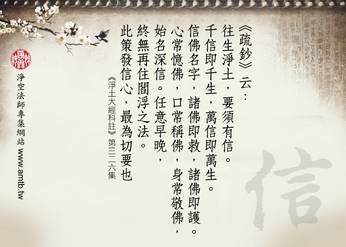 《疏鈔》云：
往生淨土，要須有信。
千信即千生，萬信即萬生。
信佛名字，諸佛即救，諸佛即護。
心常憶佛，口常稱佛，身常敬佛，
始名深信。任意早晚，
終無再住閻浮之法。
此策發信心，最為切要也
《淨土大經科註》第三二六集
信
淨空法師專集網站 www.amtb.tw